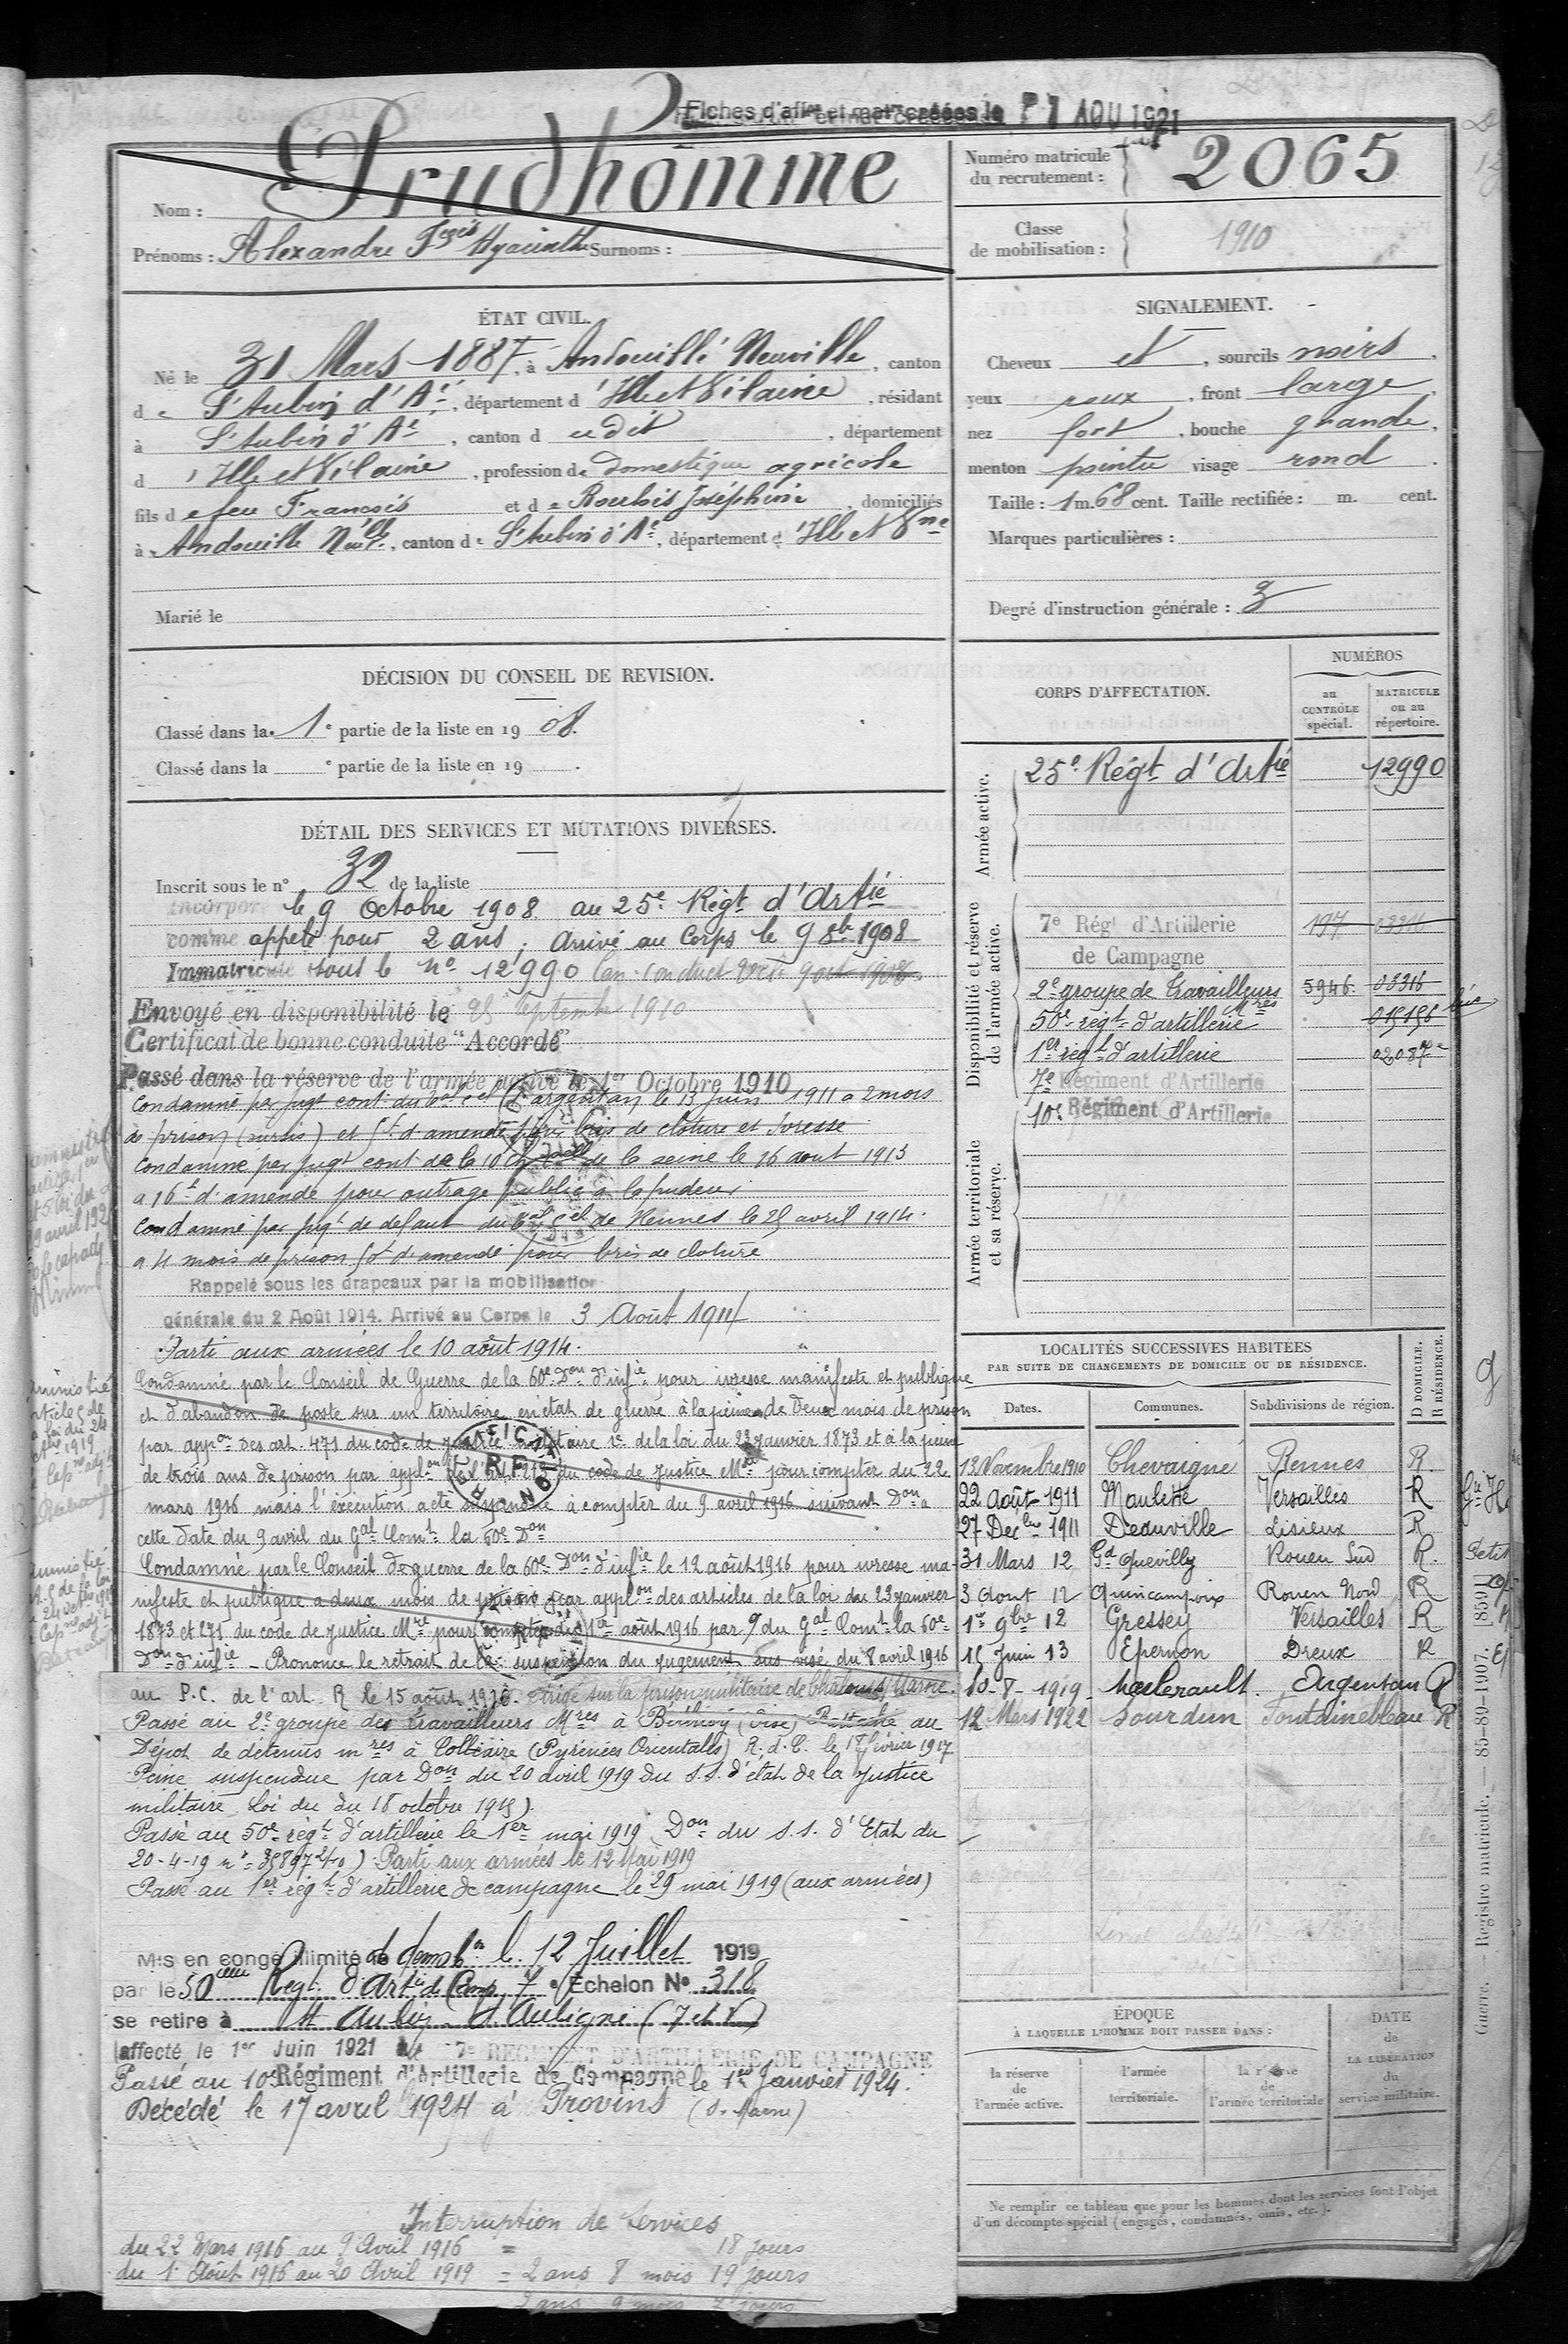 Fiches d'affon et matre créées le 1 AOU 1921
Nom : Prudhomme
Prénoms : Alexandre Fçois Hyacinthe Surnoms :
Numéro matricule du recrutement : 2065
Classe de mobilisation : 1910
ÉTAT CIVIL.
Né le 31 Mars 1887, à Andouillé Neuville, canton
de St Aubin d'Aé, département d'Ille et Vilaine, résidant
à St Aubin d'Aé, canton d udit, département
d'Ille et Vilaine, profession de Domestique agricole
fils de feu François et de Roubis Joséphine, domiciliés
à Andouillé Neuville, canton de St Aubin d'Aé, département d'Ille et Vne
Marié le
SIGNALEMENT.
Cheveux et, sourcils noirs,
yeux roux, front large,
nez fort, bouche grande,
menton pointu visage rond.
Taille : 1 m. 68 cent. Taille rectifiée : m. cent.
Marques particulières :
Degré d'instruction générale : 3
DÉCISION DU CONSEIL DE REVISION.
Classé dans la 1e partie de la liste en 1908.
Classé dans la e partie de la liste en 19 .
DÉTAIL DES SERVICES ET MUTATIONS DIVERSES.
Inscrit sous le n° 32 de la liste
Incorporé le 9 Octobre 1908 au 25e Régt d'Artie
comme appelé pour 2 ans. Arrivé au Corps le 9 8bre 1908
Immatriculé sous le no 12990
Envoyé en disponibilité le 25 Septembre 1910
Certificat de bonne conduite "Accordé"
Passé dans la réserve de l'armée active le 1er Octobre 1910
Condamné par jugt cont. du d'argentan le 13 Juin 1911 a 2 mois
de prison (sursis) et 5f d'amende pour bris de cloture et ivresse
Condamné par jugt cont de la 10 de la seine le 16 aout 1913
a 16f d'amende pour outrage public à la pudeur
Condamné par jugt de defaut du de Rennes le 25 avril 1914.
a 4 mois de prison 5f d'amende pour bris de cloture
Rappelé sous les drapeaux par la mobilisation
générale du 2 Août 1914. Arrivé au Corps le 3 Août 1914
Parti aux armées le 10 août 1914.
Condamné par le Conseil de Guerre de la 60e Don d'infie pour ivresse manifeste et publique
et d'abandon de poste sur un territoire en état de guerre à la peine de Deux mois de prison
par appon des art. 471 du code de justice militaire 1e de la loi du 23 janvier 1873 et à la peine
de trois ans de prison par applon de l'art. 213 du code de Justice Mre pour compter du 22
mars 1916 mais l'exécution a été suspendue à compter du 9 avril 1916 suivant Don a
cette date du 9 avril du Gal Comt la 60e Don
Condamné par le Conseil de guerre de la 60e Don d'infie le 12 août 1916 pour ivresse ma-
nifeste et publique a deux mois de prison par applon des articles de la loi du 23 janvier
1873 et 271 du code de Justice Mre pour compter du 1er août 1916 par O du Gal Comt la 60e
Don d'infie - Prononce le retrait de la suspension du jugement sus visé du 8 avril 1916
au P.C. de l'art. R le 15 août 1916. Dirigé sur la prison militaire de Chalons s/ Marne.
Passé au 2e groupe des travailleurs Mres à (Oise) au
Dépot de détenus mres à Collioure (Pyrénées Orientales) R.d.C. le 18 février 1917
Peine suspendue par Don du 20 avril 1919 du S.S. d'état de la Justice
militaire. Loi du du 18 octobre 1919).
Passé au 50e régt d'artillerie le 1er mai 1919 Don du S.S. d'Etat du
20-4-19 no 35897 2/10) Parti aux armées le 12 Mai 1919
Passé au 1er régt d'artillerie de campagne le 29 mai 1919 (aux armées)
Mis en congé illimité de démobon le 12 Juillet 1919
par le 50eme Régt d'Artie de Camp. 7e Echelon No 318
se retire à St Aubin d'Aubigné (I et V)
affecté le 1er Juin 1921 au 7e REGIMENT D'ARTILLERIE DE CAMPAGNE
Passé au 10e Régiment d'Artillerie de Campagne le 1er Janvier 1924.
Décédé le 17 avril 1924 à Provins (S. Marne)
Interruption de services
du 22 Mars 1916 au 9 Avril 1916 = 18 jours
du 1 Août 1916 au 20 Avril 1919 = 2 ans 8 mois 19 jours
2 ans 9 mois 7 jours
CORPS D'AFFECTATION.
NUMÉROS
au CONTRÔLE spécial.
MATRICULE ou au répertoire.
Armée active.
25e Régt d'Artie 12990
Disponibilité et réserve de l'armée active.
7e Régt d'Artillerie 197 03316
de Campagne
2e groupe de Travailleurs Mres 5946 03316
50e régt d'artillerie 015156
1er régt d'artillerie 02087
7e Régiment d'Artillerie
10e Régiment d'Artillerie
Armée territoriale et sa réserve.
LOCALITÉS SUCCESSIVES HABITÉES
PAR SUITE DE CHANGEMENTS DE DOMICILE OU DE RÉSIDENCE.
D DOMICILE. R RÉSIDENCE.
Dates. Communes. Subdivisions de région.
12 Novembre 1910 Chevaigné Rennes R
22 Août 1911 Maulette Versailles R
27 Décbre 1911 Deauville Lisieux R
31 Mars 12 Gd Quevilly Rouen Sud R.
3 Aout 12 Quincampoix Rouen Nord R
1er 9bre 12 Gressey Versailles R
15 Juin 13 Epernon Dreux R
10-8-1919 Merlerault Argentan R
12 Mars 1922 Sourdun Fontainebleau R
ÉPOQUE
À LAQUELLE L'HOMME DOIT PASSER DANS :
la réserve de l'armée active.
l'armée territoriale.
la réserve de l'armée territoriale
DATE de LA LIBÉRATION du service militaire.
Ne remplir ce tableau que pour les hommes dont les services font l'objet
d'un décompte spécial (engagés, condamnés, omis, etc.).
Guerre. — Registre matricule. — 85-89-1907. [8501]